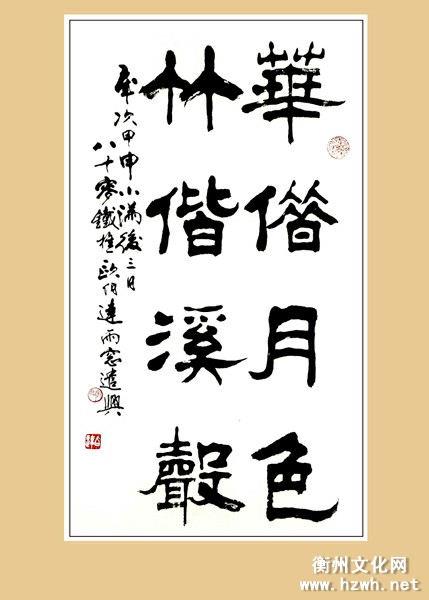 華僭月色
竹偕溪聲
歲次甲申小滿後三日
八十 鐵 歐伯達雨窓遣興
衡州文化网
www.hzwh.net